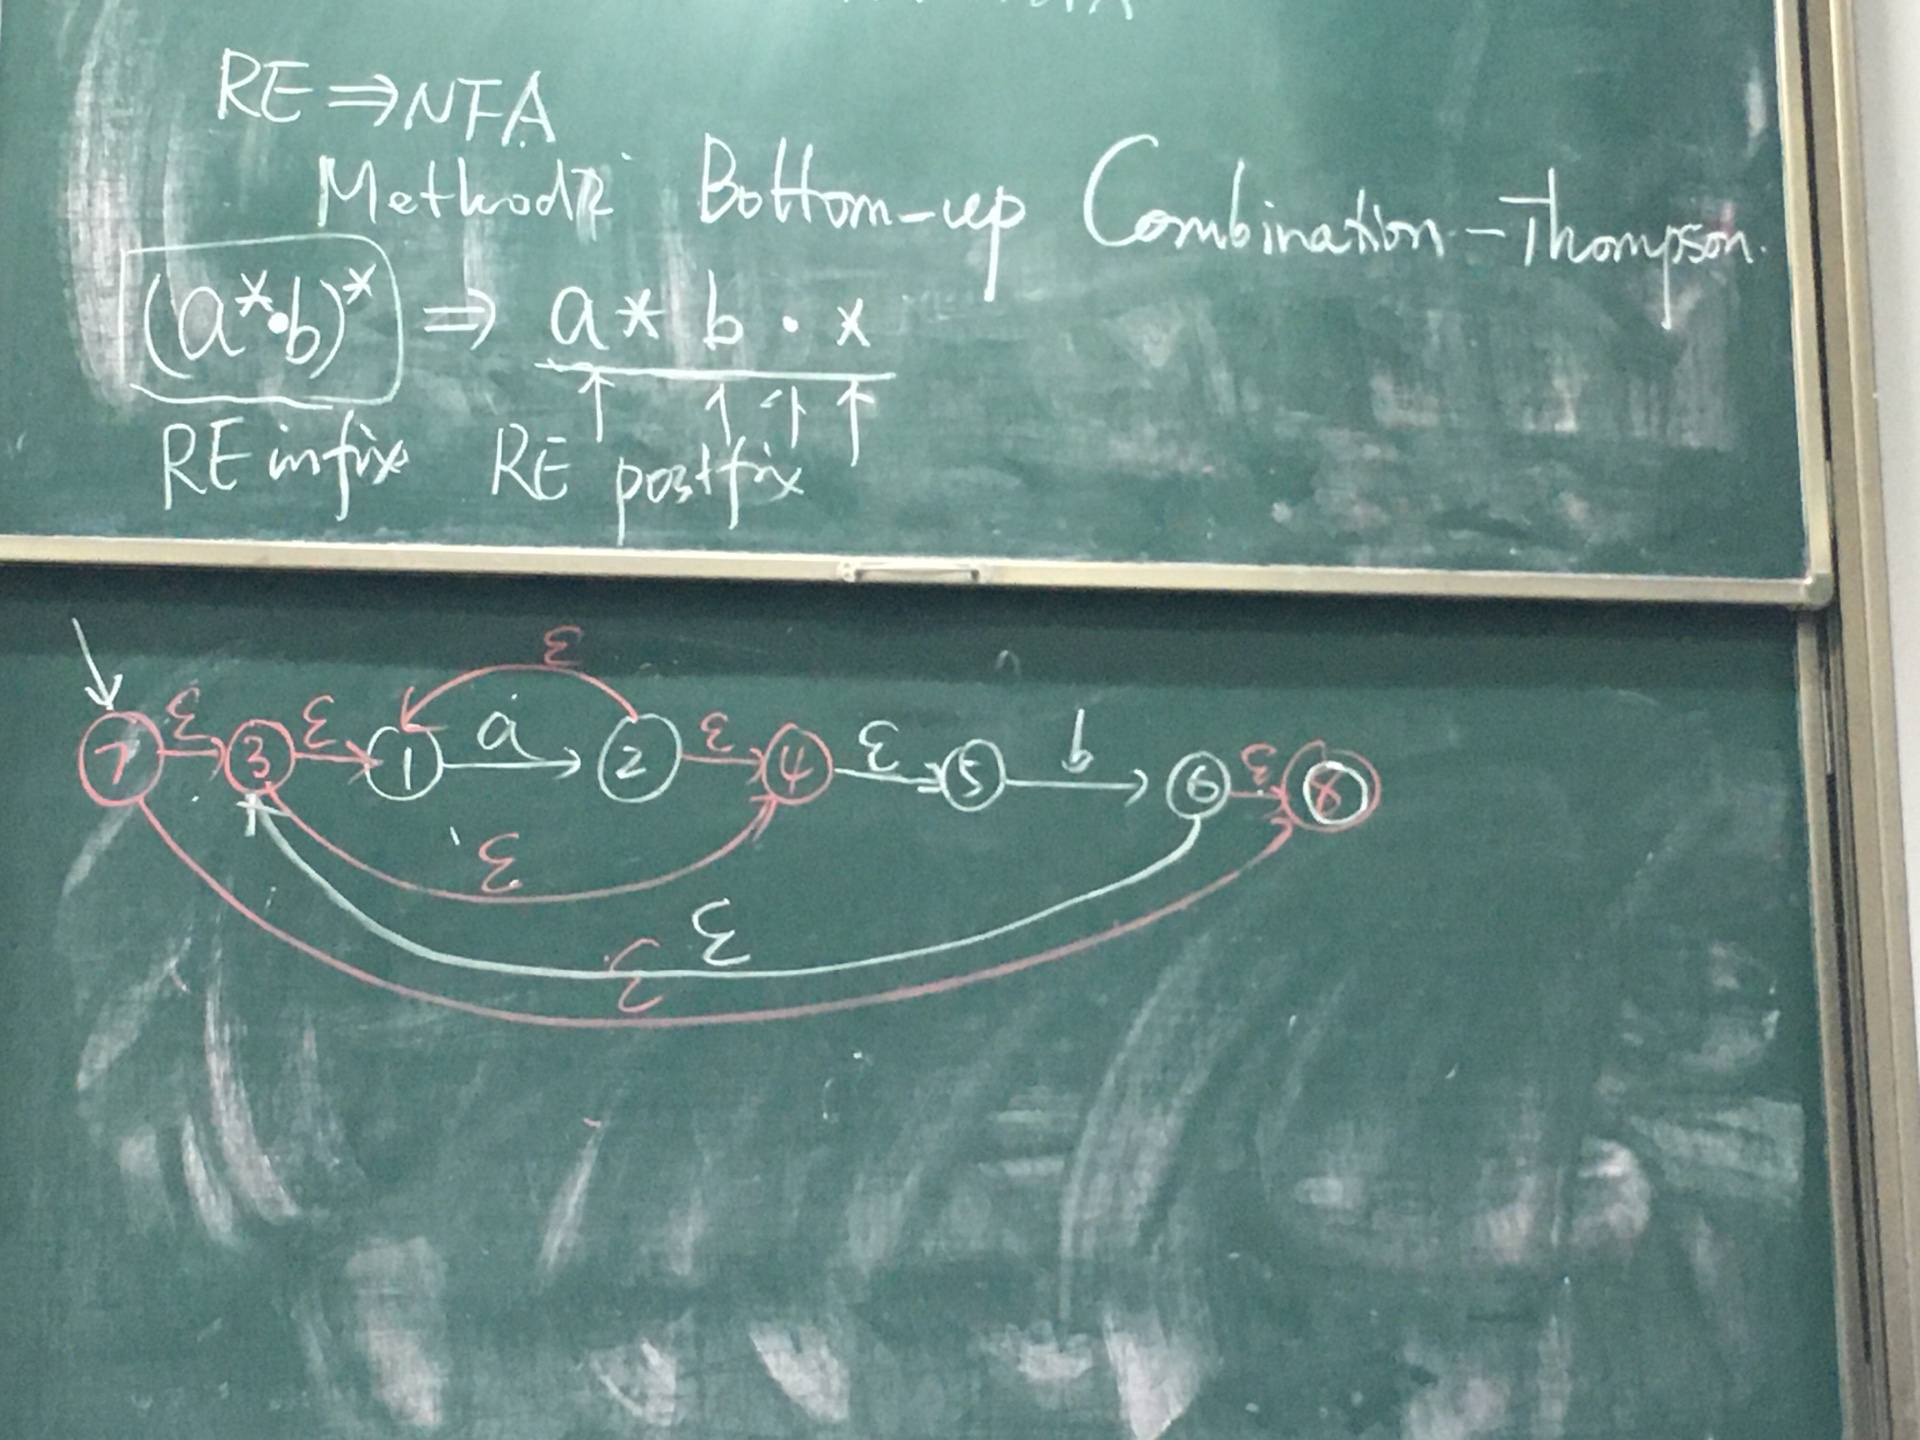 RE ⇒ NFA
Method2 Bottom-up Combination - Thompson.
(a*•b)* ⇒ a * b • *
RE infix RE postfix
ε
7 ε 3 ε 1 a 2 ε 4 ε 5 b 6 ε 8
ε
ε
ε